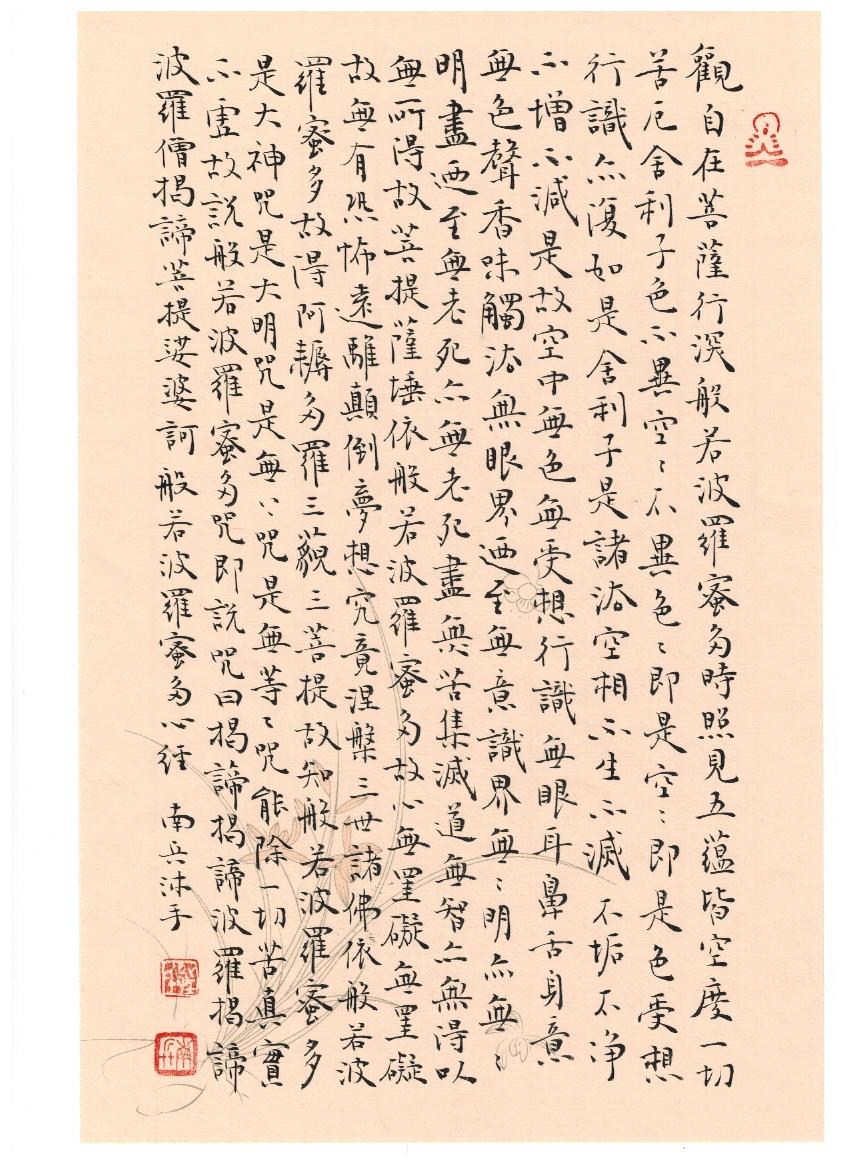 觀自在菩薩行深般若波羅蜜多時照見五蘊皆空度一切
苦厄舍利子色不異空〻不異色〻即是空〻即是色受想
行識亦復如是舍利子是諸法空相不生不滅不垢不净
不增不減是故空中無色無受想行識無眼耳鼻舌身意
無色聲香味觸法無眼界迺至無意識界無〻明亦無〻
明盡迺至無老死亦無老死盡無苦集滅道無智亦無得以
無所得故菩提薩埵依般若波羅蜜多故心無罣礙無罣礙
故無有恐怖遠離顛倒夢想究竟涅槃三世諸佛依般若波
羅蜜多故得阿耨多羅三藐三菩提故知般若波羅蜜多
是大神咒是大明咒是無〻咒是無等〻咒能除一切苦真實
不虛故説般若波羅蜜多咒即説咒曰揭諦揭諦波羅揭諦
波羅僧揭諦菩提娑婆訶般若波羅蜜多心經 南兵沐手
南兵